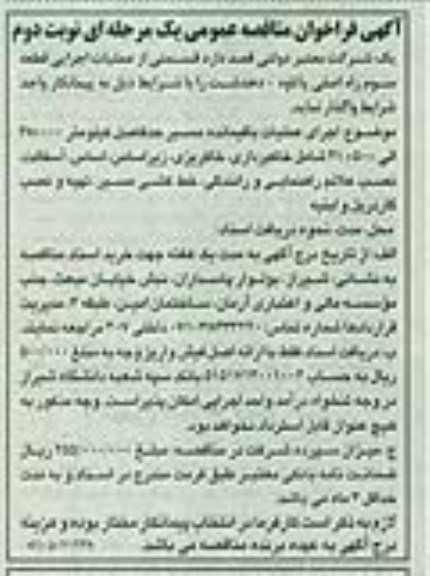 آگهی فراخوان مناقصه عمومی یک مرحله ای نوبت دوم
یک شرکت معتبر دولتی قصد دارد قسمتی از عملیات اجرایی قطعه
سوم راه اصلی پاتاوه - دهدشت را با شرایط ذیل به پیمانکار واجد
شرایط واگذار نماید.
موضوع: اجرای عملیات باقیمانده مسیر حدفاصل کیلومتر
الی شامل خاکبرداری، خاکریزی، زیراساس، اساس، آسفالت،
نصب علائم راهنمایی و رانندگی، خط کشی مسیر، تهیه و نصب
گاردریل و ابنیه
محل، مدت، نحوه دریافت اسناد:
الف: از تاریخ درج آگهی به مدت یک هفته جهت خرید اسناد مناقصه
به نشانی: شیراز، بولوار پاسداران، نبش خیابان مبعث، جنب
موسسه مالی و اعتباری آرمان، ساختمان امین، طبقه ۳، مدیریت
قراردادها شماره تماس: داخلی ۳۰۷ مراجعه نمایند.
ب: دریافت اسناد فقط با ارائه اصل فیش واریز وجه به مبلغ ۵۰۰/۰۰۰
ریال به حساب بانک سپه شعبه دانشگاه شیراز
در وجه درآمد واحد اجرایی امکان پذیر است. وجه مذکور به
هیچ عنوان قابل استرداد نخواهد بود.
ج: میزان سپرده شرکت در مناقصه: مبلغ ریال
ضمانت نامه بانکی معتبر طبق فرمت مندرج در اسناد و به مدت
حداقل ۳ ماه می باشد.
لازم به ذکر است کارفرما در انتخاب پیمانکار مختار بوده و هزینه
درج آگهی به عهده برنده مناقصه می باشد.